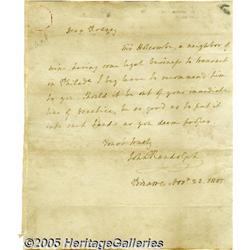 Dear Hodge,
Mr Holcombe, a neighbor of
mine, having some legal business to transact
in Philada I beg leave to recommend him
to you. Should it be out of your immediate
line of practice, be so good as to put it
into such hands as you deem proper.
Yours truly
John Randolph
Novr 22. 1805
©2005 HeritageGalleries